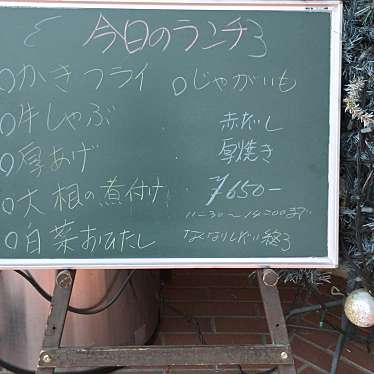 今日のランチ
○かきフライ
○牛しゃぶ
○厚あげ
○大根の煮付け
○白菜おひたし
○じゃがいも
赤だし
厚焼き
¥650-
11-30~14-00まで
なくなりしだい終る